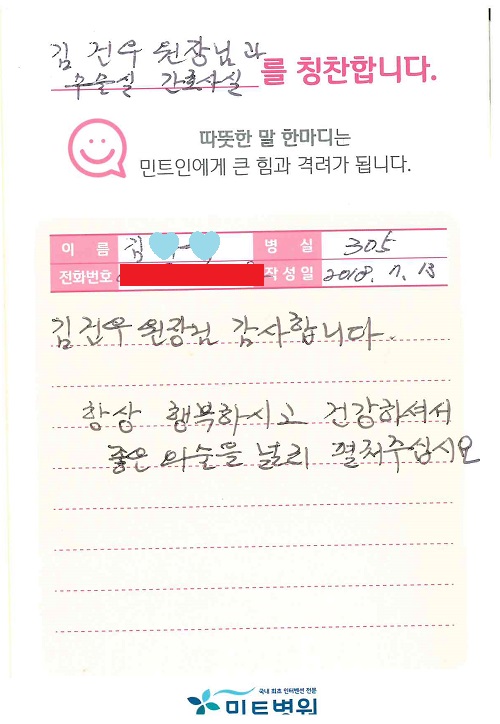 김 건우 원장님과
수술실 간호사실 를 칭찬합니다.
따뜻한 말 한마디는
민트인에게 큰 힘과 격려가 됩니다.
이 름 김 병 실 305
전화번호 작성일 2018. 7. 13
김건우 원장님 감사합니다.
항상 행복하시고 건강하셔서
좋은 의술을 널리 펼처주십시오
국내 최초 인터벤션 전문
민트병원